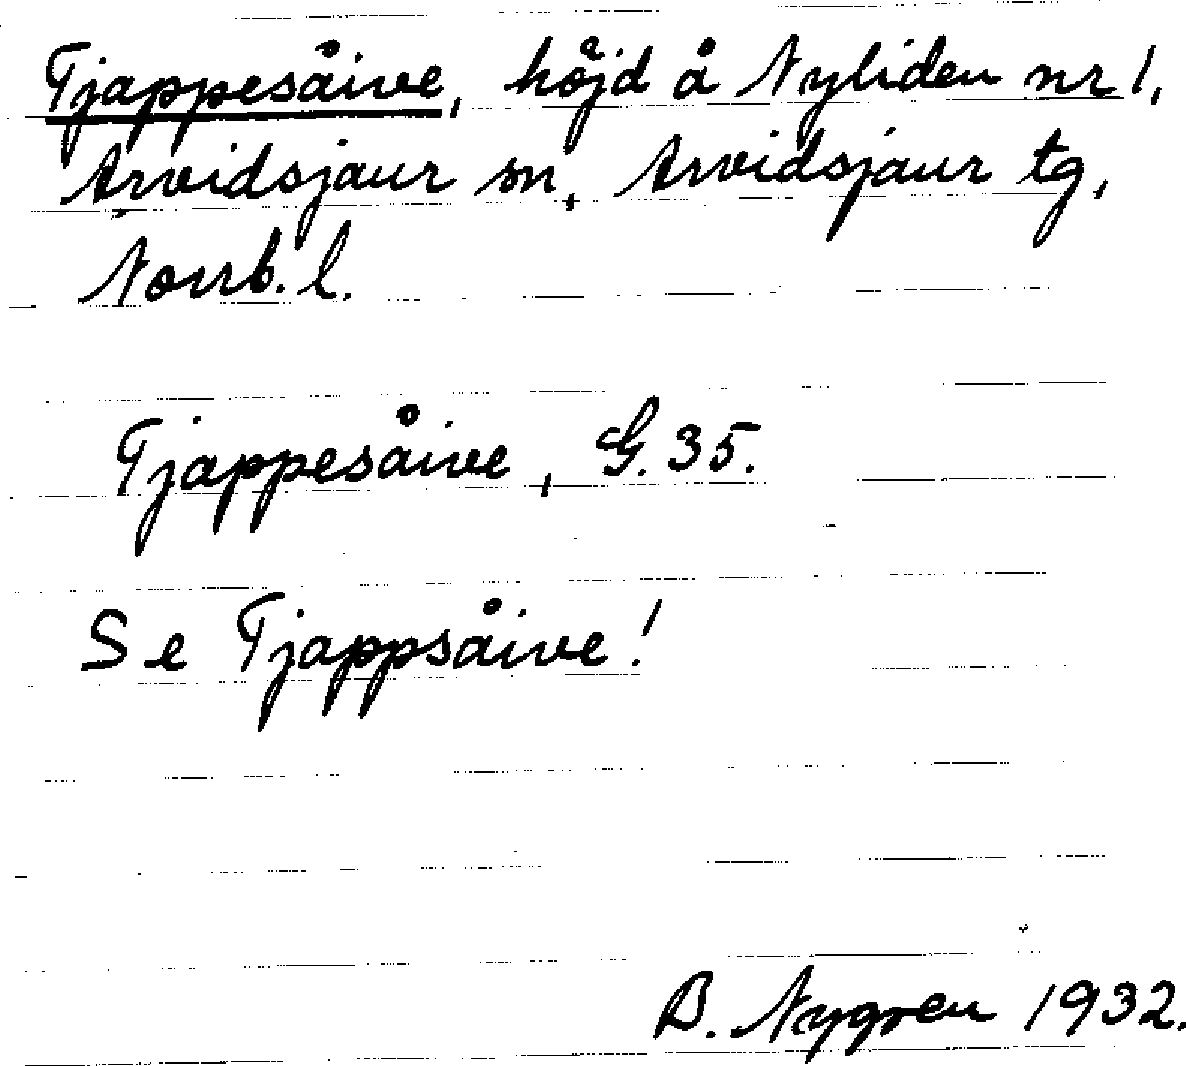 Tjappesåive, höjd å Nyliden nr 1,
Arvidsjaur sn, Arvidsjaur tg,
Norrb. l.
Tjappesåive, G. 35.
Se Tjappsåive!
B. Nygren 1932.